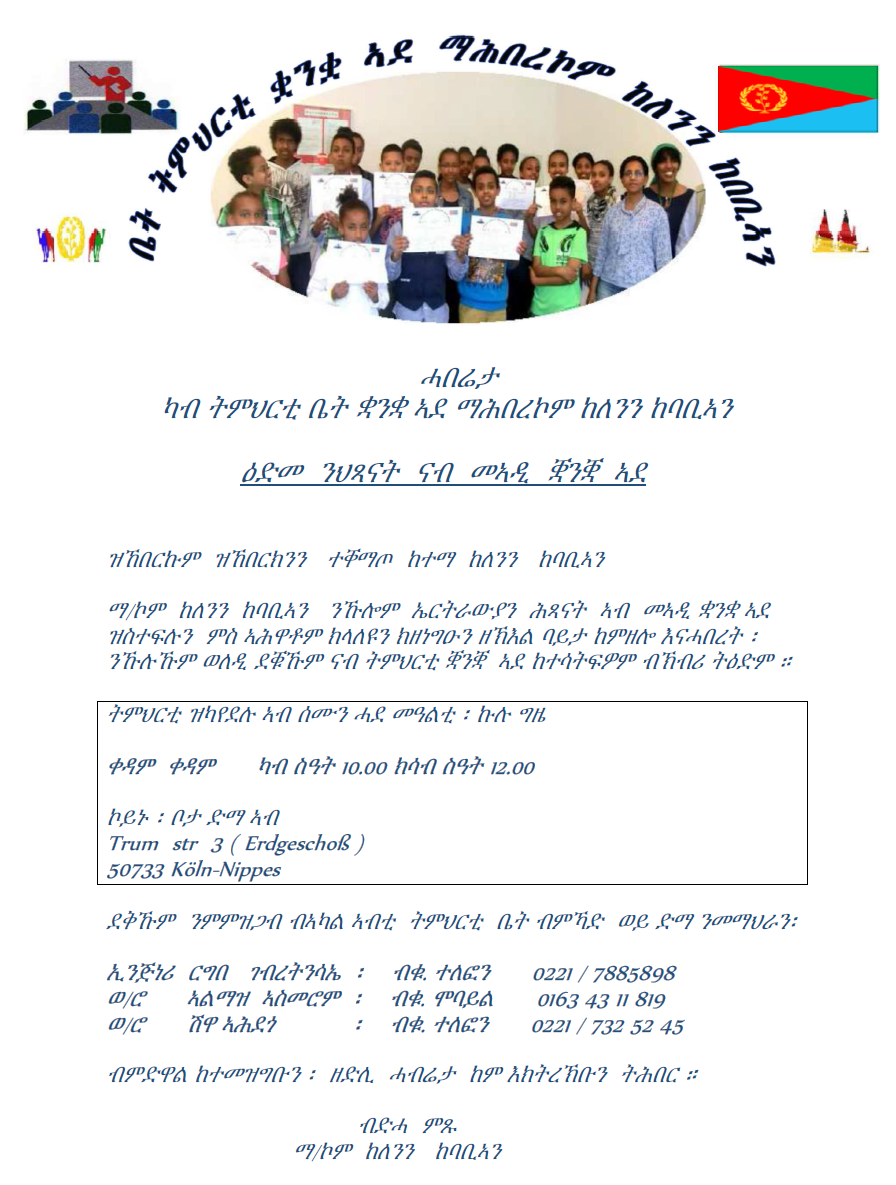 ቤት ትምህርቲ ቋንቋ ኣደ ማሕበረኮም ከለንን ከበቢኣን
ሓበሬታ
ካብ ትምህርቲ ቤት ቋንቋ ኣደ ማሕበረኮም ከለንን ከባቢኣን
ዕድመ ንህጻናት ናብ መኣዲ ቛንቛ ኣደ
ዝኸበርኩም ዝኸበርክንን ተቐማጦ ከተማ ከለንን ከባቢኣን
ማ/ኮም ከለንን ከባቢኣን ንኹሎም ኤርትራውያን ሕጻናት ኣብ መኣዲ ቋንቋ ኣደ
ዝስተፍሉን ምስ ኣሕዋቶም ክላለዩን ክዘነግዑን ዘኽእል ባይታ ከምዘሎ እናሓበረት ፡
ንኹሉኹም ወለዲ ደቒኹም ናብ ትምህርቲ ቛንቛ ኣደ ከተሳትፍዎም ብኽብሪ ትዕድም ።
ትምህርቲ ዝካየደሉ ኣብ ሰሙን ሓደ መዓልቲ ፡ ኩሉ ግዜ
ቀዳም ቀዳም ካብ ስዓት 10.00 ክሳብ ስዓት 12.00
ኮይኑ ፡ ቦታ ድማ ኣብ
Trum str 3 ( Erdgeschoß )
50733 Köln-Nippes
ደቅኹም ንምምዝጋብ ብኣካል ኣብቲ ትምህርቲ ቤት ብምኻድ ወይ ድማ ንመማህራን፡
ኢንጅነሪ ርግበ ገብረትንሳኤ ፡ ብቁ. ተለፎን 0221 / 7885898
ወ/ሮ ኣልማዝ ኣስመሮም ፡ ብቁ. ሞባይል 0163 43 11 819
ወ/ሮ ሽዋ ኣሕደጎ ፡ ብቁ. ተለፎን 0221 / 732 52 45
ብምድዋል ከተመዝግቡን ፡ ዘድሊ ሓብሬታ ከም እክትረኽቡን ትሕበር ።
ብድሓ ምጹ
ማ/ኮም ከለንን ከባቢኣን